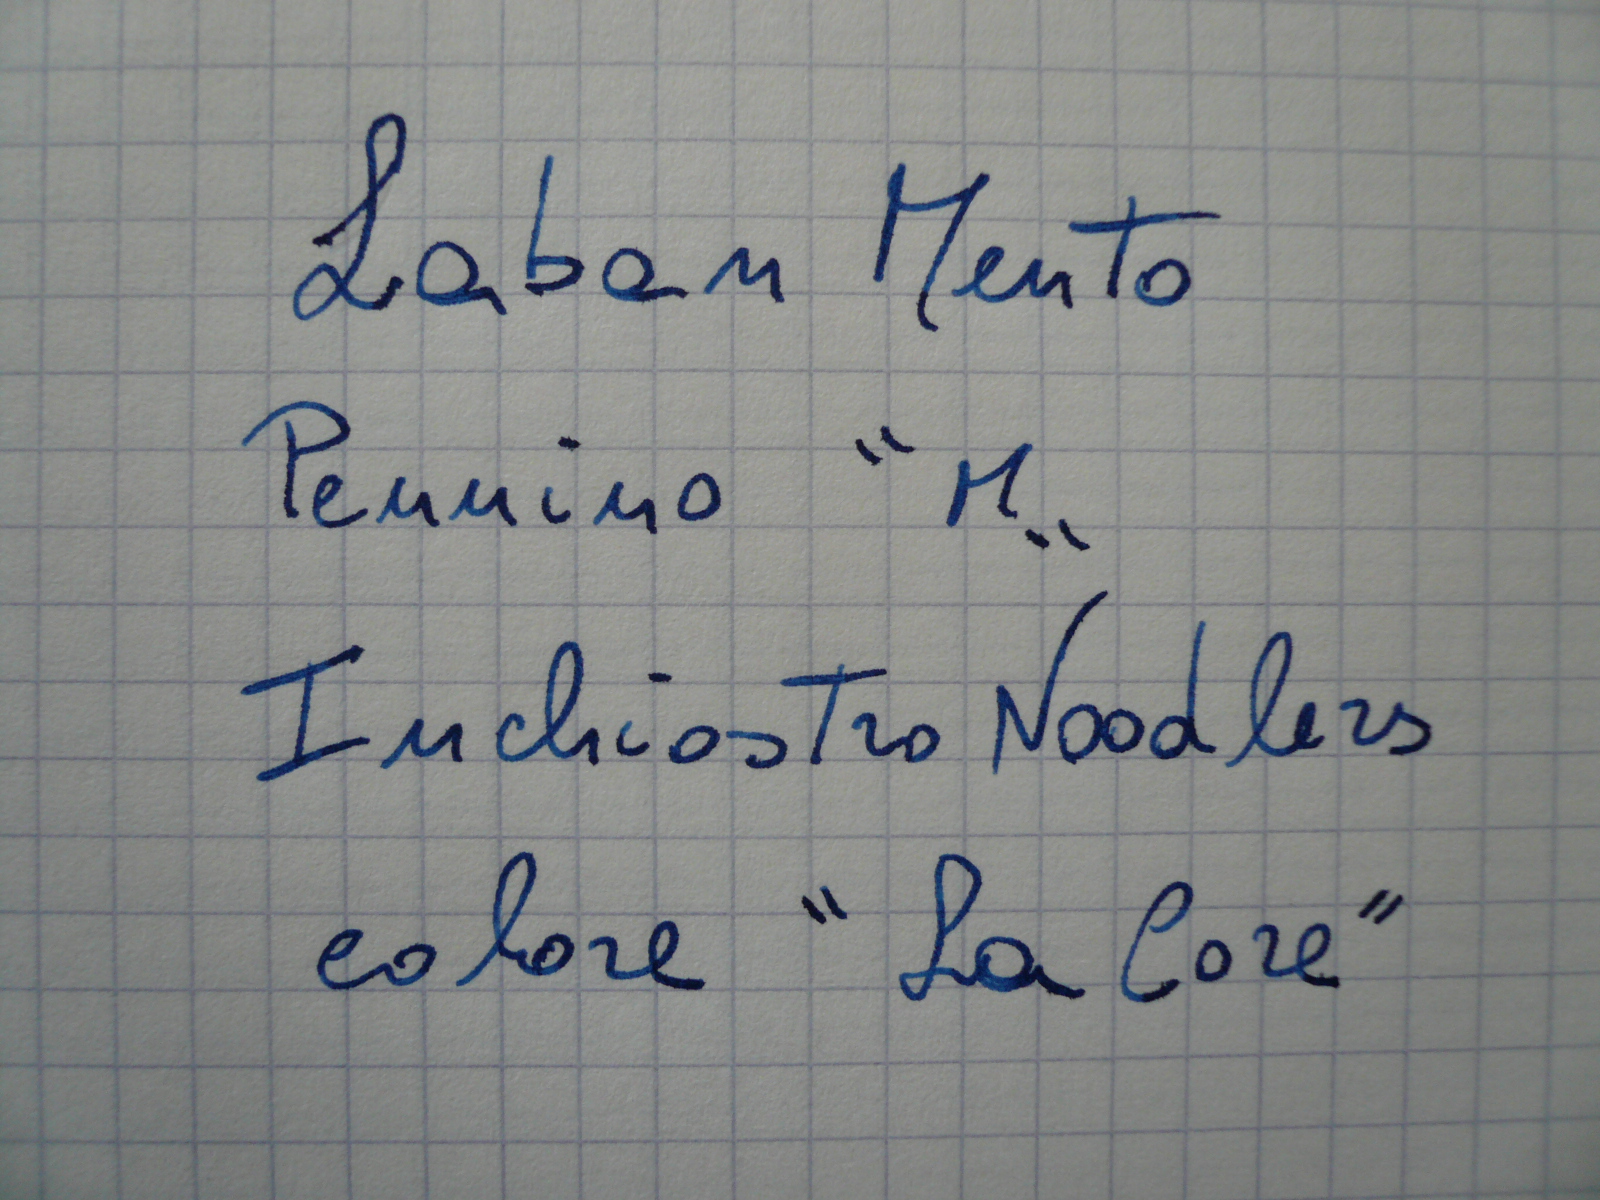 Laban Mento
Pennino "M"
Inchiostro Noodlers
colore "La Core"